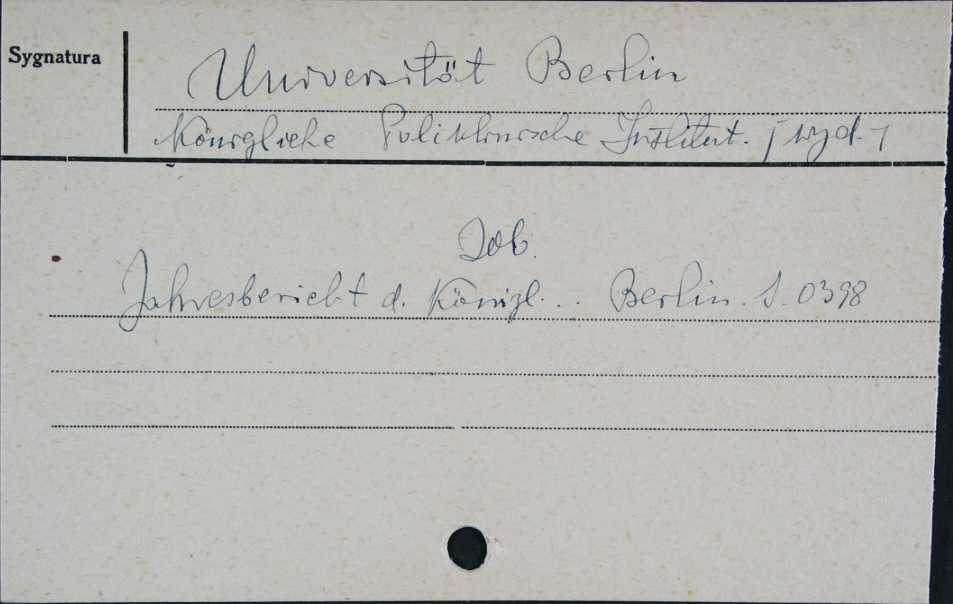 Sygnatura
Universität Berlin
Königliche Poliklinische Institut. [wyd.]
Zob.
Jahresbericht d. Königl... Berlin. S. 0398